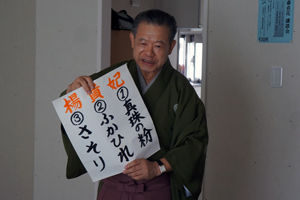 楊貴妃
①真珠の粉
②ふかひれ
③さそり